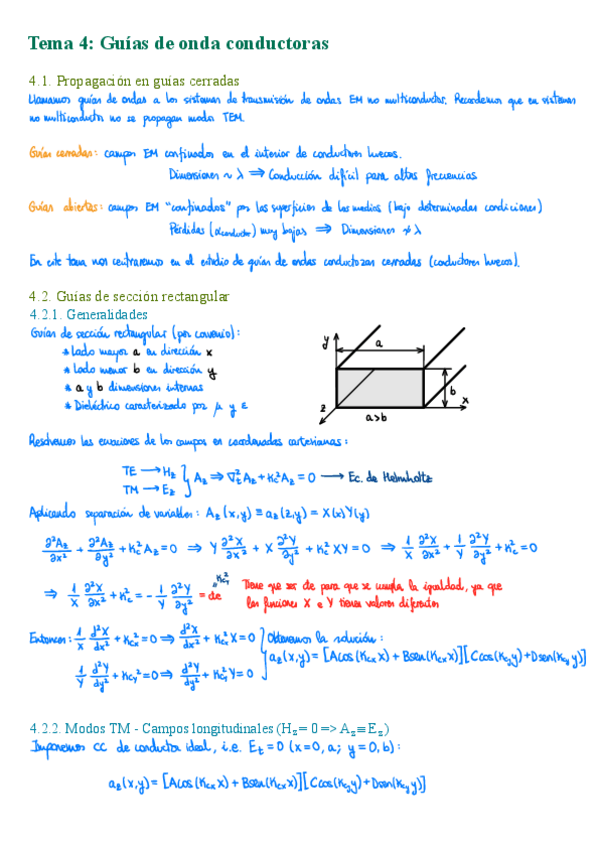 Tema 4: Guías de onda conductoras
4.1. Propagación en guías cerradas
Llamamos guías de ondas a los sistemas de transmisión de ondas EM no multiconductor. Recordemos que en sistemas
no multiconductor no se propagan modos TEM.
Guías cerradas: campos EM confinados en el interior de conductores huecos.
Dimensiones ~ λ ⇒ Conducción difícil para altas frecuencias
Guías abiertas: campos EM "confinados" por las superficies de los medios (bajo determinadas condiciones)
Pérdidas (αconductor) muy bajas ⇒ Dimensiones ≁ λ
En este tema nos centraremos en el estudio de guías de ondas conductoras cerradas (conductores huecos).
4.2. Guías de sección rectangular
4.2.1. Generalidades
Guías de sección rectangular (por convenio):
* Lado mayor a en dirección x
* Lado menor b en dirección y
* a y b dimensiones internas
* Dieléctrico caracterizado por μ y ε
y
a
b
x
z
a>b
Resolvemos las ecuaciones de los campos en coordenadas cartesianas:
TE → Hz
TM → Ez } Az ⇒ ∇t²Az + Kc²Az = 0 → Ec. de Helmholtz
Aplicando separación de variables: Az(x,y) ≡ az(z,y) = X(x)Y(y)
∂²Az/∂x² + ∂²Az/∂y² + Kc²Az = 0 ⇒ Y ∂²X/∂x² + X ∂²Y/∂y² + Kc² XY = 0 ⇒ 1/X ∂²X/∂x² + 1/Y ∂²Y/∂y² + Kc² = 0
⇒ 1/X ∂²X/∂x² + Kc² = - 1/Y ∂²Y/∂y² = cte
Tiene que ser cte para que se cumpla la igualdad, ya que
las funciones X e Y tienen valores diferentes
Entonces: 1/X d²X/dx² + Kcx² = 0 ⇒ d²X/dx² + Kcx² X = 0
1/Y d²Y/dy² + Kcy² = 0 ⇒ d²Y/dy² + Kcy² Y = 0
Obtenemos la solución:
az(x,y) = [Acos(Kcx x) + Bsen(Kcx x)][Ccos(Kcy y) + Dsen(Kcy y)]
4.2.2. Modos TM - Campos longitudinales (Hz = 0 => Az ≡ Ez)
Imponemos CC de conductor ideal, i.e. Et = 0 (x=0, a; y=0, b):
az(x,y) = [Acos(Kcx x) + Bsen(Kcx x)][Ccos(Kcy y) + Dsen(Kcy y)]